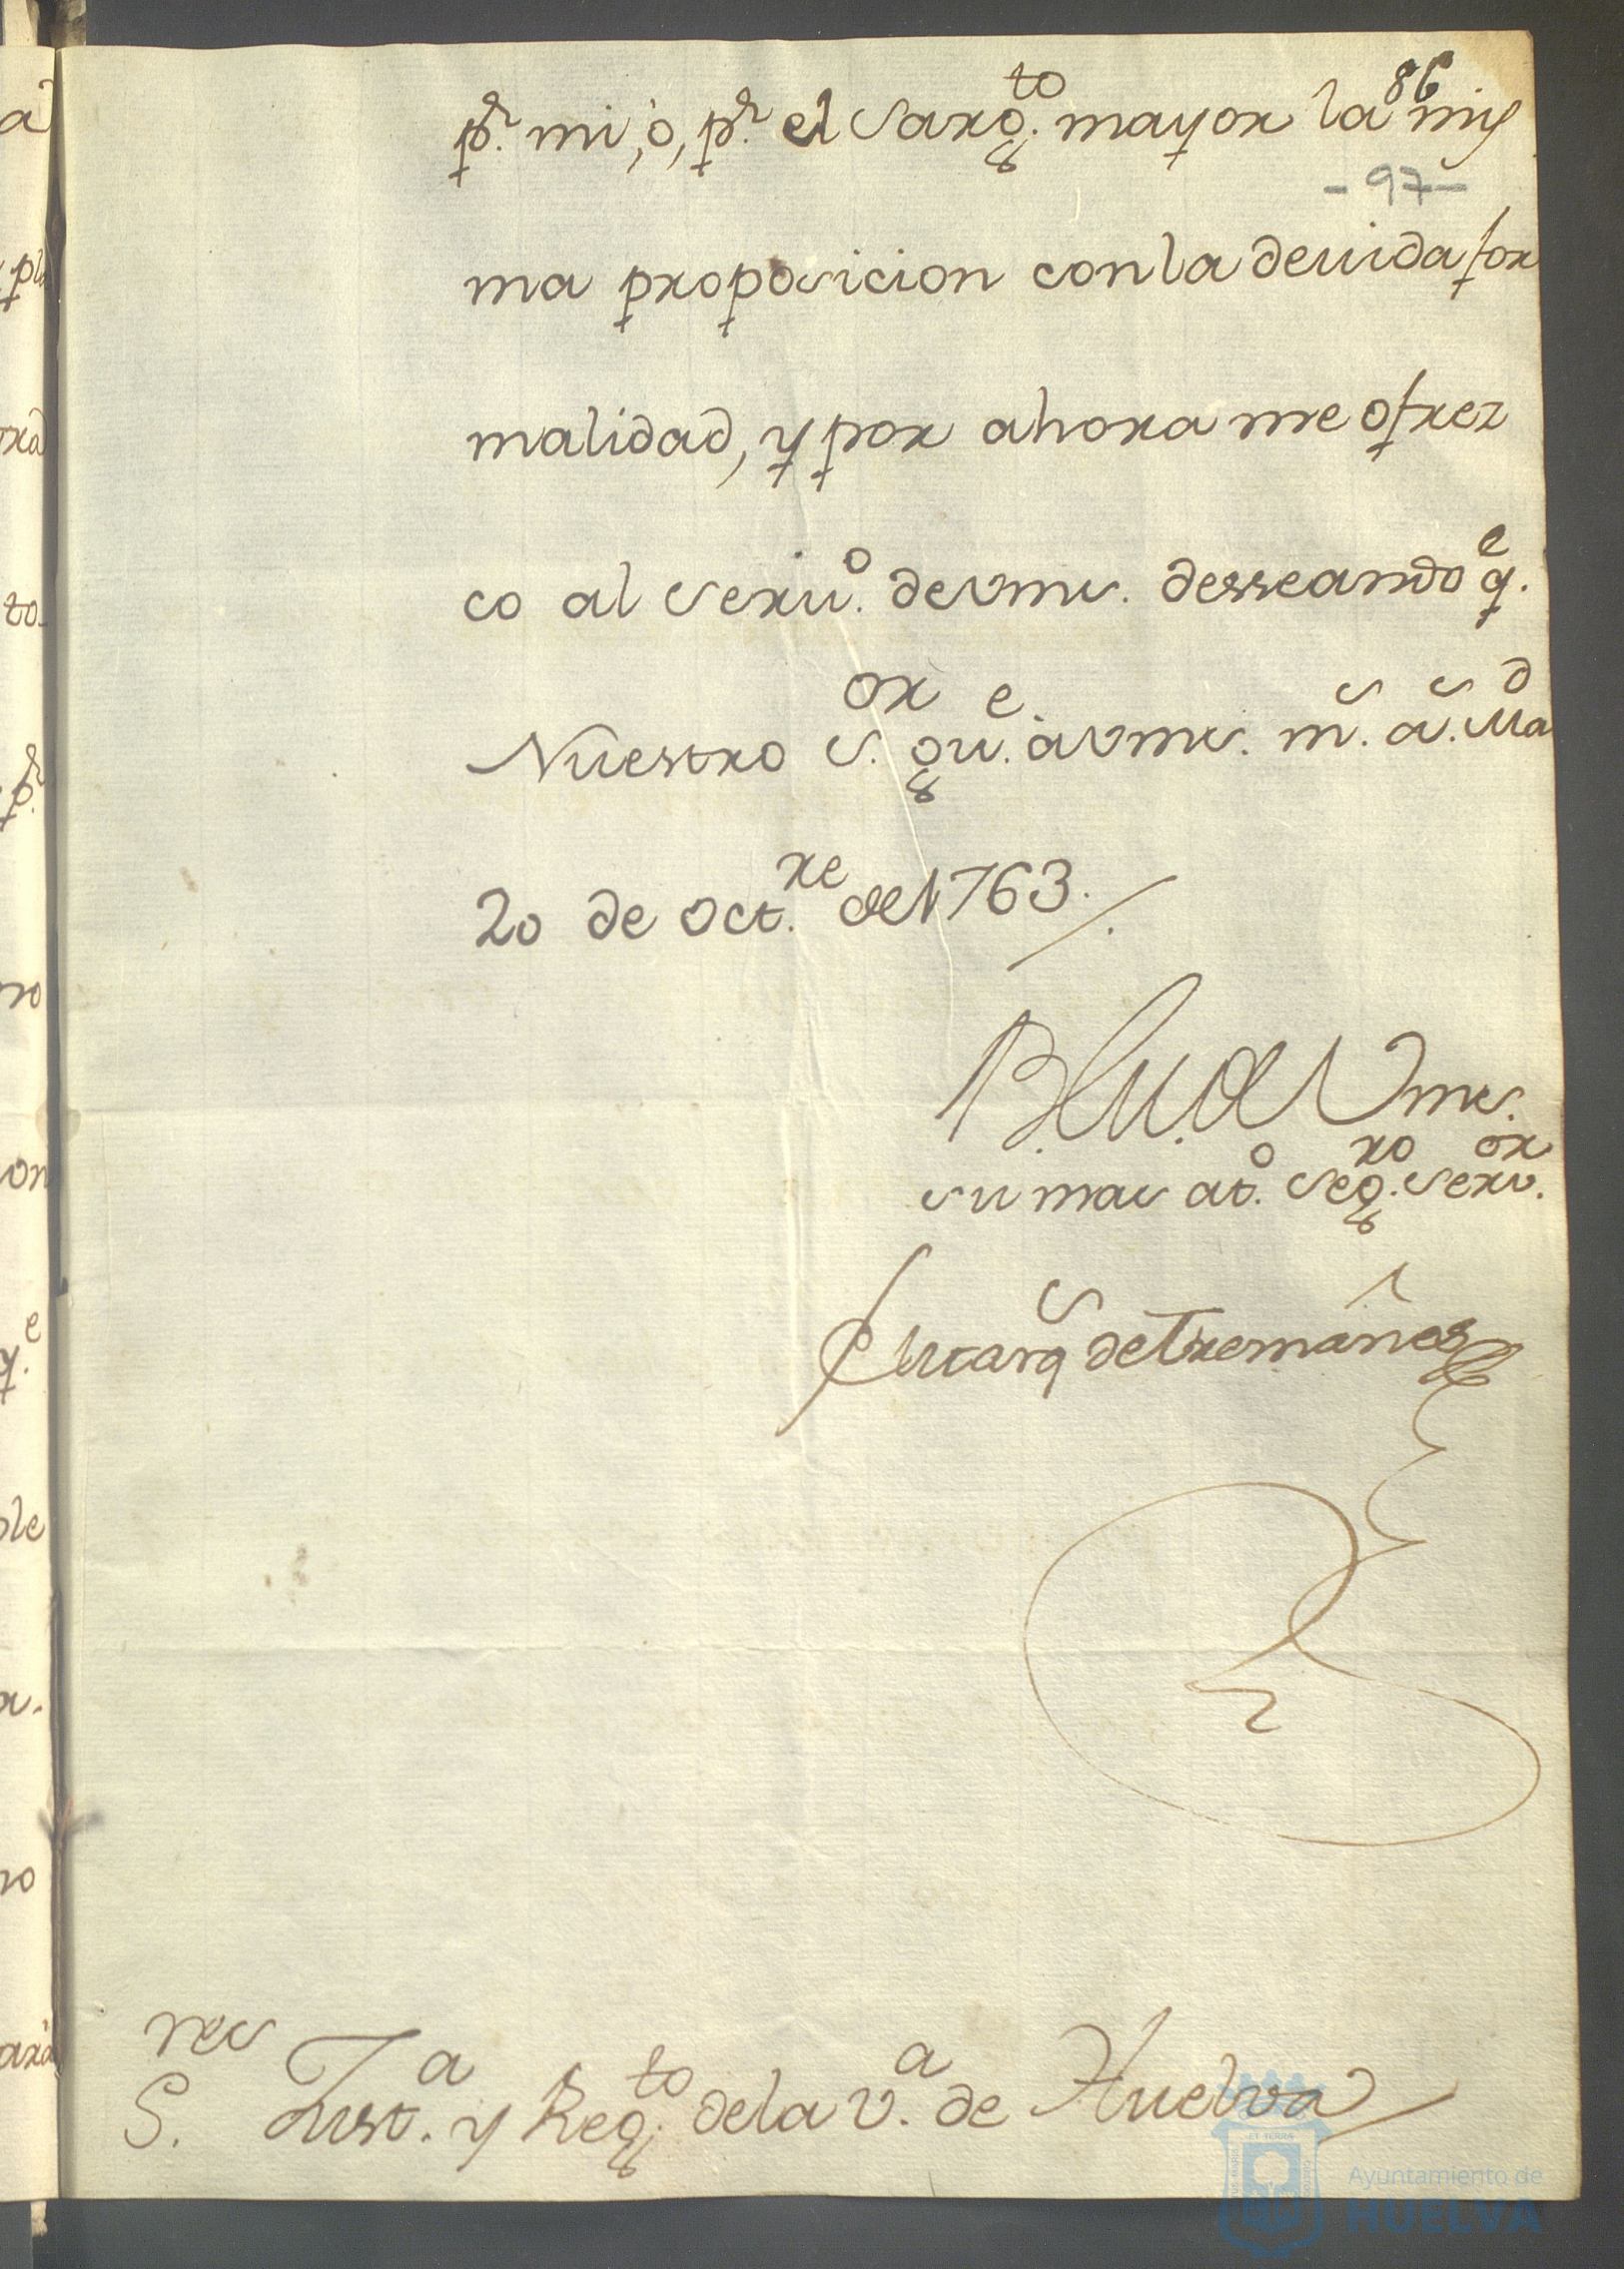 86
p.r mi, ò, p.r el Sarg.to mayor la mis
-97-
ma proposicion con la deuida for
malidad, y por ahora me ofrez
co al Seruu.o de vms. desseando q.e
Nuestro S.or gu.e à vms. m.s a.s Mad
20 de oct.re de 1763.
B. L. M. de Vms.
su mas at.o seg.ro serv.or
El Marq.s de Tremañes
S.res Just.a y Reg.to de la v.a de Huelva
Ayuntamiento de
HUELVA